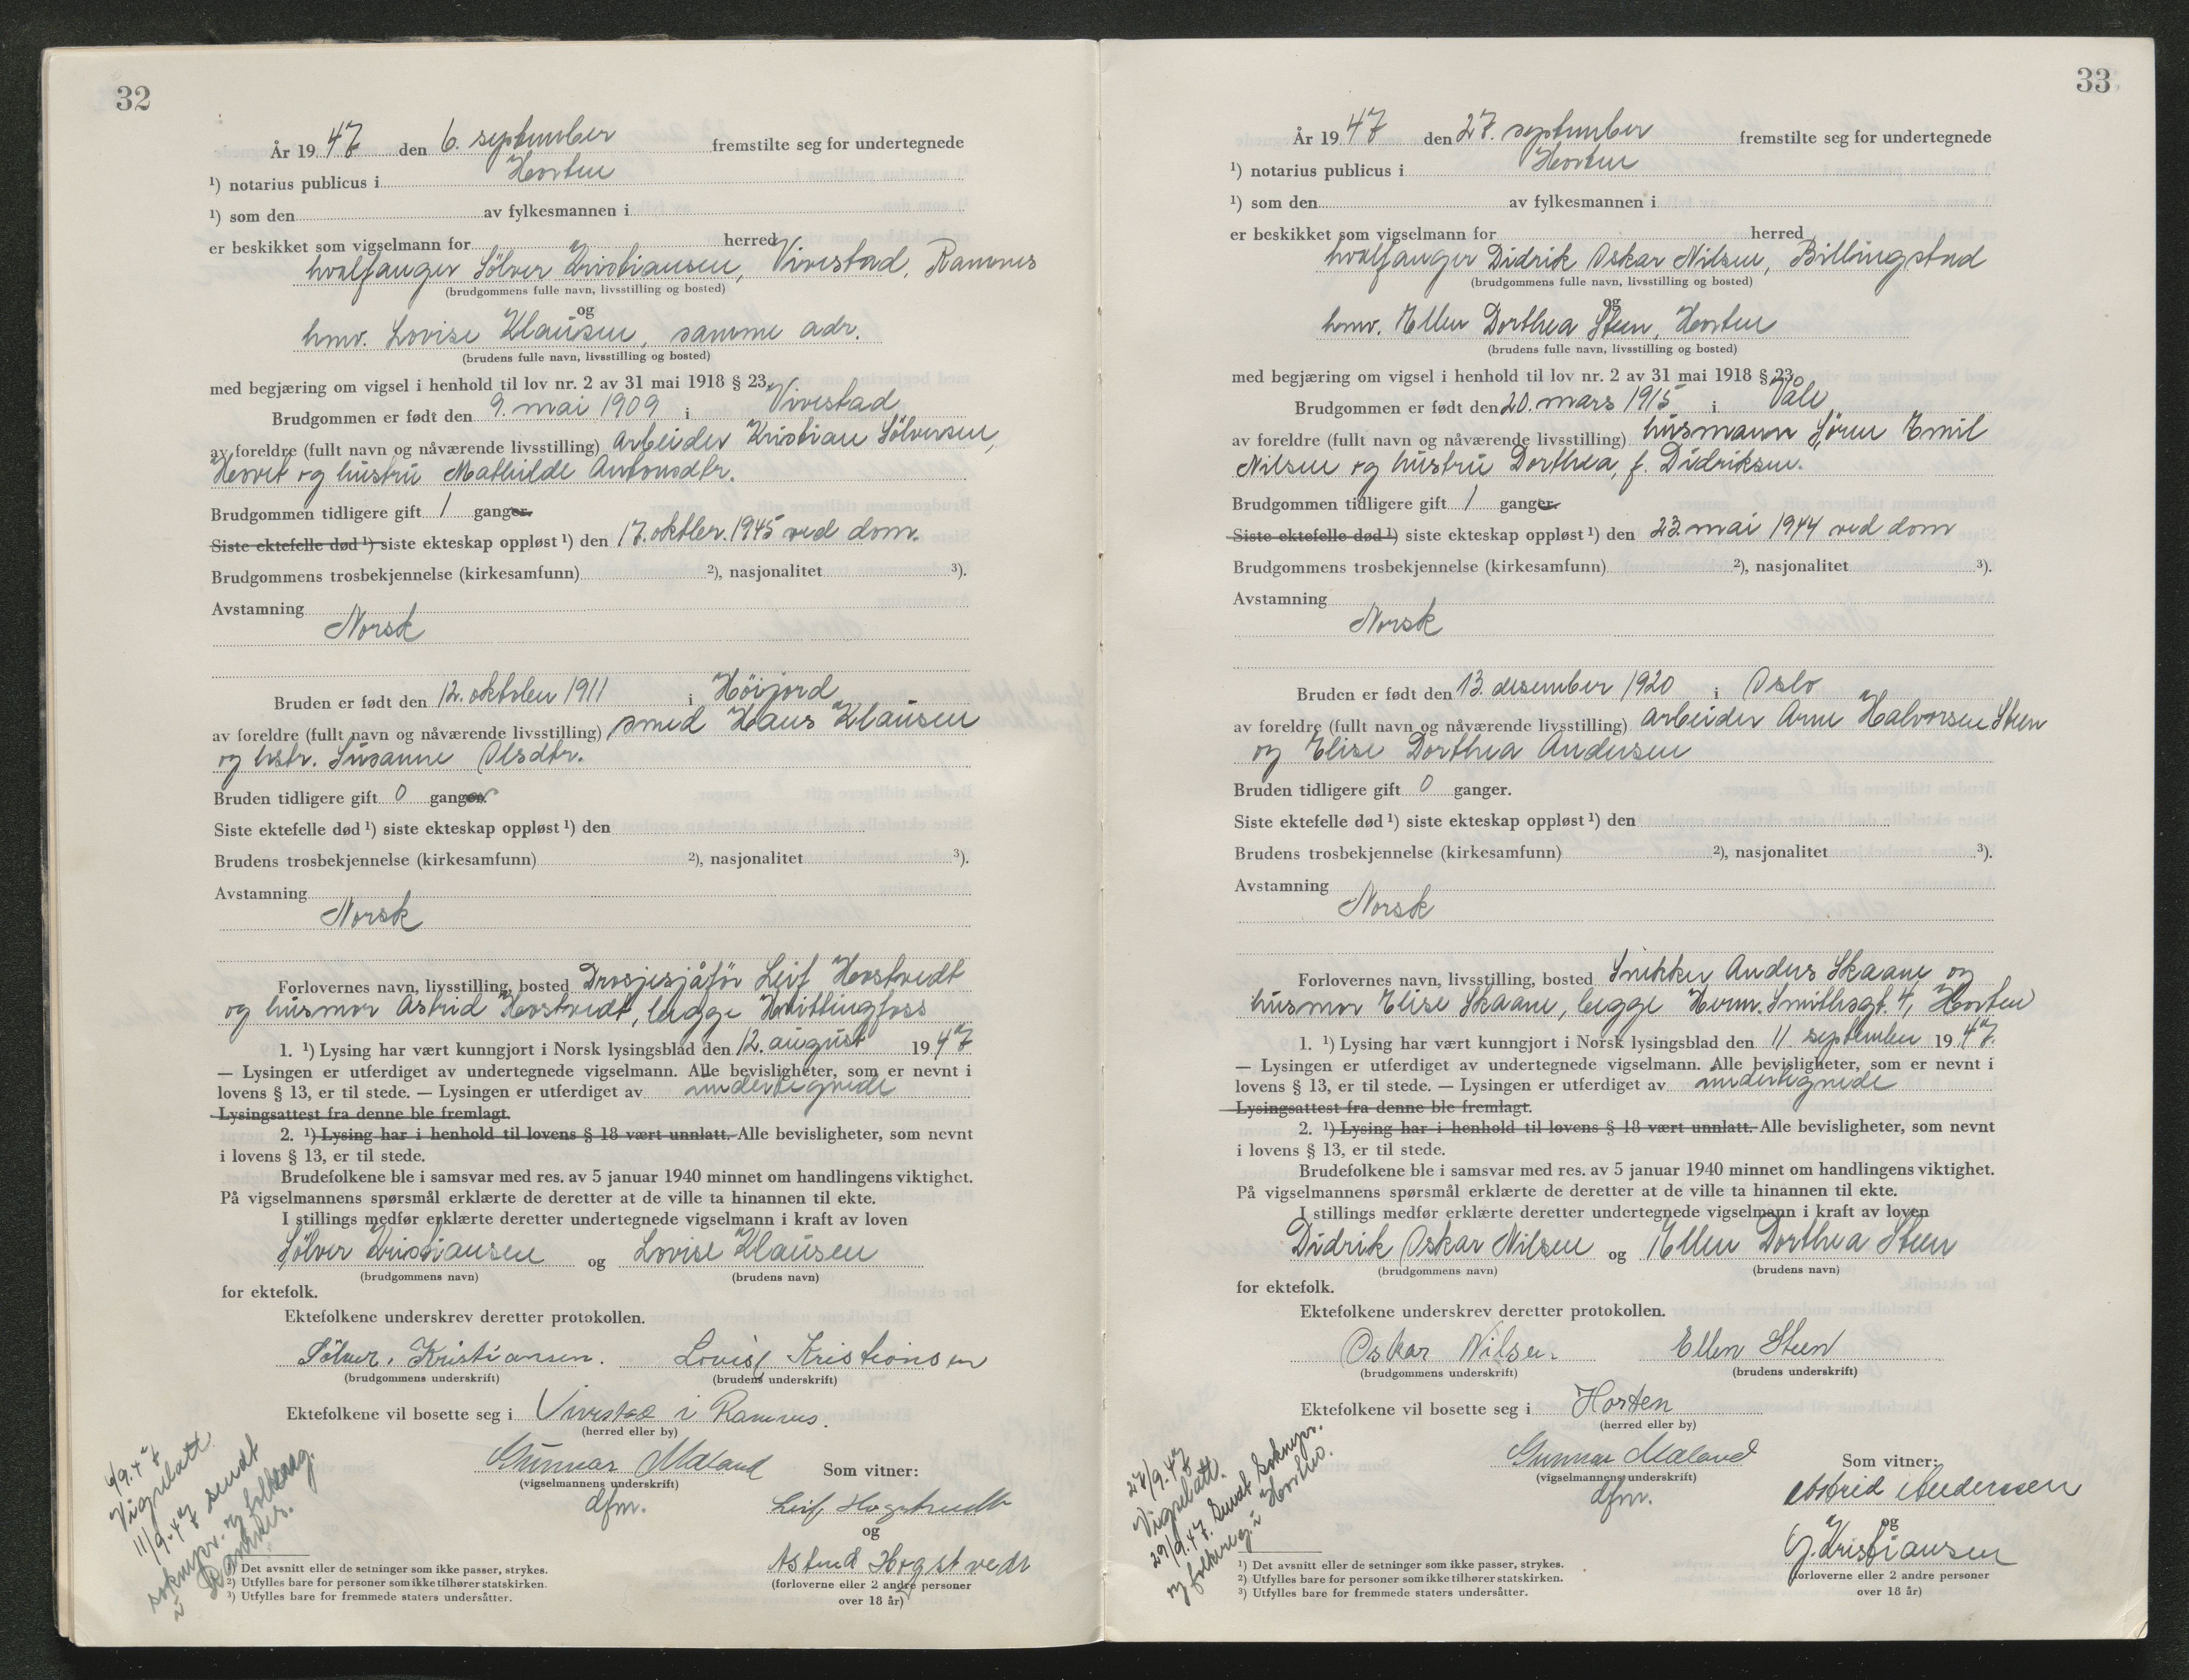 32
År 19 47 den 6. september fremstilte seg for undertegnede
¹) notarius publicus i Horten
¹) som den av fylkesmannen i
er beskikket som vigselmann for herred
hvalfanger Sölver Kristiansen, Vivestad, Ramnes
(brudgommens fulle navn, livsstilling og bosted)
og
hmv. Lovise Klausen, samme adr.
(brudens fulle navn, livsstilling og bosted)
med begjæring om vigsel i henhold til lov nr. 2 av 31 mai 1918 § 23.
Brudgommen er født den 9. mai 1909 i Vivestad
av foreldre (fullt navn og nåværende livsstilling) arbeider Kristian Sölversen,
Hovet og hustru Mathilde Antonsdtr.
Brudgommen tidligere gift 1 ganger.
Siste ektefelle død ¹) siste ekteskap oppløst ¹) den 17. oktber. 1945 ved dom.
Brudgommens trosbekjennelse (kirkesamfunn) ²), nasjonalitet ³).
Avstamning
Norsk
Bruden er født den 12. oktober 1911 i Höijord
av foreldre (fullt navn og nåværende livsstilling) smed Hans Klausen
og hstr. Susanne Olsdtr.
Bruden tidligere gift 0 ganger.
Siste ektefelle død ¹) siste ekteskap oppløst ¹) den
Brudens trosbekjennelse (kirkesamfunn) ²), nasjonalitet ³).
Avstamning
Norsk
Forlovernes navn, livsstilling, bosted Drosjesjåför Leif Hostvedt
og husmor Astrid Hostvedt, begge Hvittingfoss
1. ¹) Lysing har vært kunngjort i Norsk lysingsblad den 12. august 19 47
— Lysingen er utferdiget av undertegnede vigselmann. Alle bevisligheter, som er nevnt i
lovens § 13, er til stede. — Lysingen er utferdiget av undertegnede
Lysingsattest fra denne ble fremlagt.
2. ¹) Lysing har i henhold til lovens § 18 vært unnlatt. Alle bevisligheter, som nevnt
i lovens § 13, er til stede.
Brudefolkene ble i samsvar med res. av 5 januar 1940 minnet om handlingens viktighet.
På vigselmannens spørsmål erklærte de deretter at de ville ta hinannen til ekte.
I stillings medfør erklærte deretter undertegnede vigselmann i kraft av loven
Sölver Kristiansen og Lovise Klausen
(brudgommens navn) (brudens navn)
for ektefolk.
Ektefolkene underskrev deretter protokollen.
Sölver. Kristiansen. Lovise Kristiansen
(brudgommens underskrift) (brudens underskrift)
Ektefolkene vil bosette seg i Vivestad i Ramnes.
(herred eller by)
Gunnar Mæland Som vitner:
(vigselmannens underskrift)
dfm. Leif Hogstvedt
og
Astrid Hogstvedt
(forloverne eller 2 andre personer
over 18 år)
6/9.47
Vigselatt.
11/9.47 sendt
soknepr. og folkereg.
i Ramnes.
¹) Det avsnitt eller de setninger som ikke passer, strykes.
²) Utfylles bare for personer som ikke tilhører statskirken.
³) Utfylles bare for fremmede staters undersåtter.
33
År 19 47 den 27. september fremstilte seg for undertegnede
¹) notarius publicus i Horten
¹) som den av fylkesmannen i
er beskikket som vigselmann for herred
hvalfanger Didrik Oskar Nilsen, Billingstad
(brudgommens fulle navn, livsstilling og bosted)
og
hmv. Ellen Dorthea Steen, Horten
(brudens fulle navn, livsstilling og bosted)
med begjæring om vigsel i henhold til lov nr. 2 av 31 mai 1918 § 23.
Brudgommen er født den 20. mars 1915 i Våle
av foreldre (fullt navn og nåværende livsstilling) husmann Sören Emil
Nilsen og hustru Dorthea, f. Didriksen.
Brudgommen tidligere gift 1 ganger.
Siste ektefelle død ¹) siste ekteskap oppløst ¹) den 23. mai 1944 ved dom
Brudgommens trosbekjennelse (kirkesamfunn) ²), nasjonalitet ³).
Avstamning
Norsk
Bruden er født den 13. desember 1920 i Oslo
av foreldre (fullt navn og nåværende livsstilling) arbeider Arne Halvorsen Steen
og Elise Dorthea Andersen
Bruden tidligere gift 0 ganger.
Siste ektefelle død ¹) siste ekteskap oppløst ¹) den
Brudens trosbekjennelse (kirkesamfunn) ²), nasjonalitet ³).
Avstamning
Norsk
Forlovernes navn, livsstilling, bosted Snekker Anders Skaane og
husmor Elise Skaane, begge Herm. Smithsgt. 4, Horten
1. ¹) Lysing har vært kunngjort i Norsk lysingsblad den 11 september 19 47.
— Lysingen er utferdiget av undertegnede vigselmann. Alle bevisligheter, som er nevnt i
lovens § 13, er til stede. — Lysingen er utferdiget av undertegnede
Lysingsattest fra denne ble fremlagt.
2. ¹) Lysing har i henhold til lovens § 18 vært unnlatt. Alle bevisligheter, som nevnt
i lovens § 13, er til stede.
Brudefolkene ble i samsvar med res. av 5 januar 1940 minnet om handlingens viktighet.
På vigselmannens spørsmål erklærte de deretter at de ville ta hinannen til ekte.
I stillings medfør erklærte deretter undertegnede vigselmann i kraft av loven
Didrik Oskar Nilsen og Ellen Dorthea Steen
(brudgommens navn) (brudens navn)
for ektefolk.
Ektefolkene underskrev deretter protokollen.
Oskar Nilsen. Ellen Steen
(brudgommens underskrift) (brudens underskrift)
Ektefolkene vil bosette seg i Horten
(herred eller by)
Gunnar Mæland Som vitner:
(vigselmannens underskrift)
dfm. Astrid Anderssen
og
G. Kristiansen
(forloverne eller 2 andre personer
over 18 år)
27/9.47
Vigselatt.
29/9.47. Sendt soknepr.
og folkereg. i Horten.
¹) Det avsnitt eller de setninger som ikke passer, strykes.
²) Utfylles bare for personer som ikke tilhører statskirken.
³) Utfylles bare for fremmede staters undersåtter.